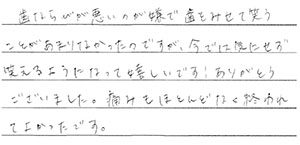 歯ならびが悪いのが嫌で歯をみせて笑う
ことがあまりなかったのですが、今では気にせず
笑えるようになって嬉しいです！ありがとう
ございました。痛みもほとんどなく終われ
てよかったです。